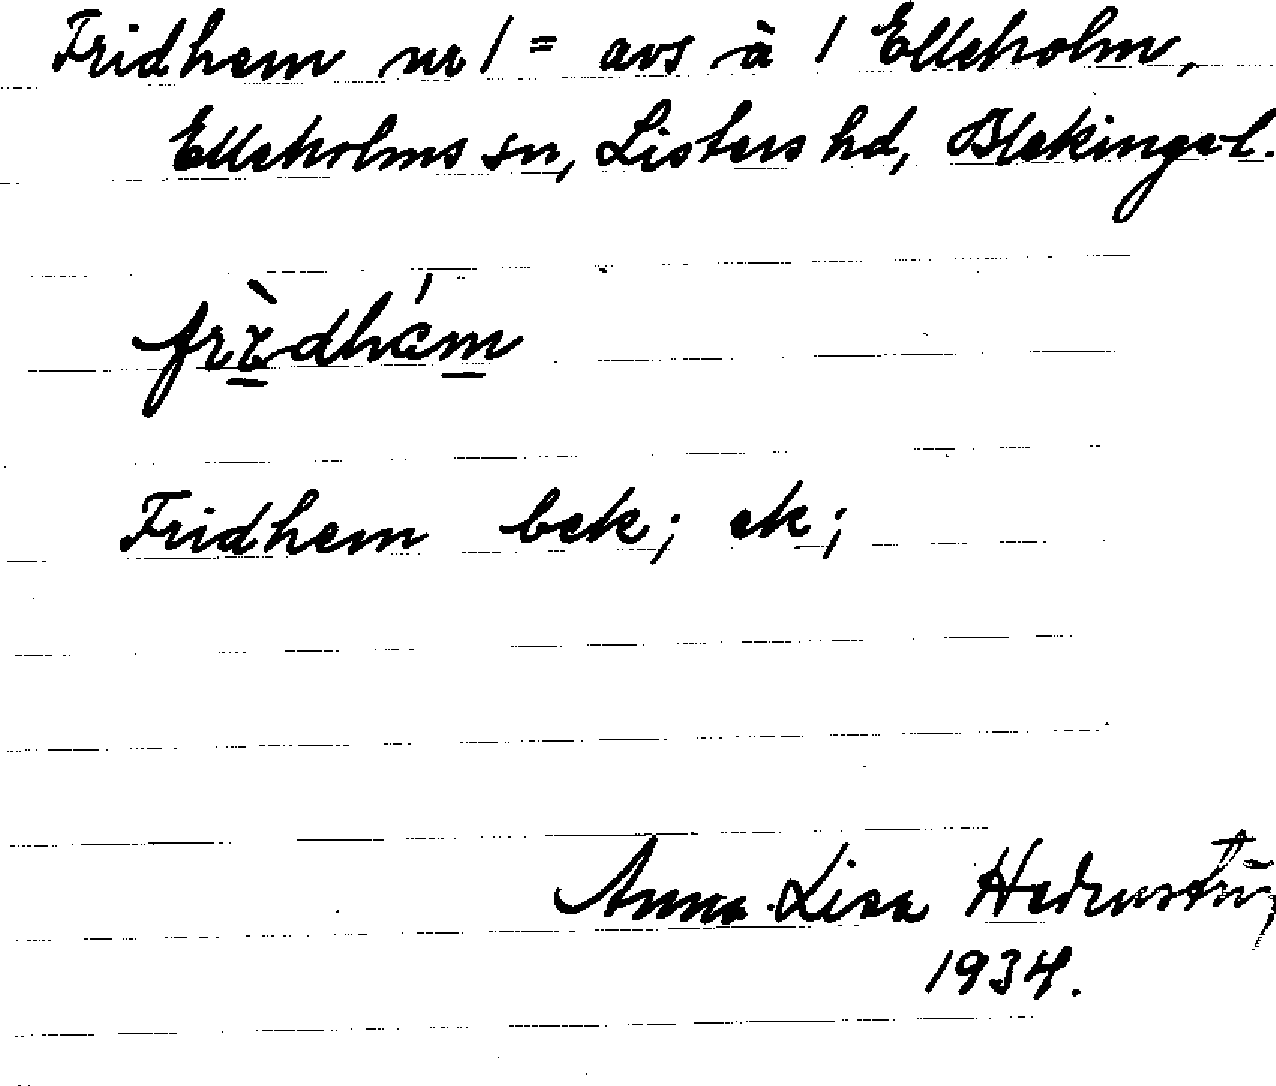 Fridhem nr 1 = avs à 1 Elleholm,
Elleholms sn, Listers hd, Blekinge l.
frı̀dhám
Fridhem bek; ek;
Anna-Lisa
1934.